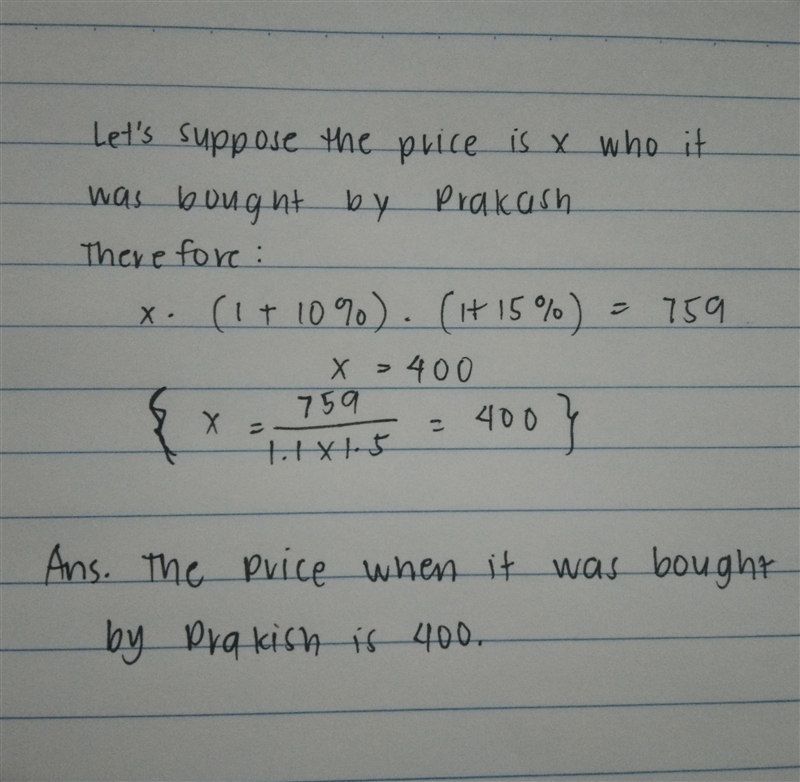 Let's suppose the price is x who it
was bought by Prakash
Therefore:
x. (1 + 10%). (1+ 15%) = 759
x = 400
{ x = 759 / 1.1 x 1.5 = 400 }
Ans. The price when it was bought
by Prakish is 400.